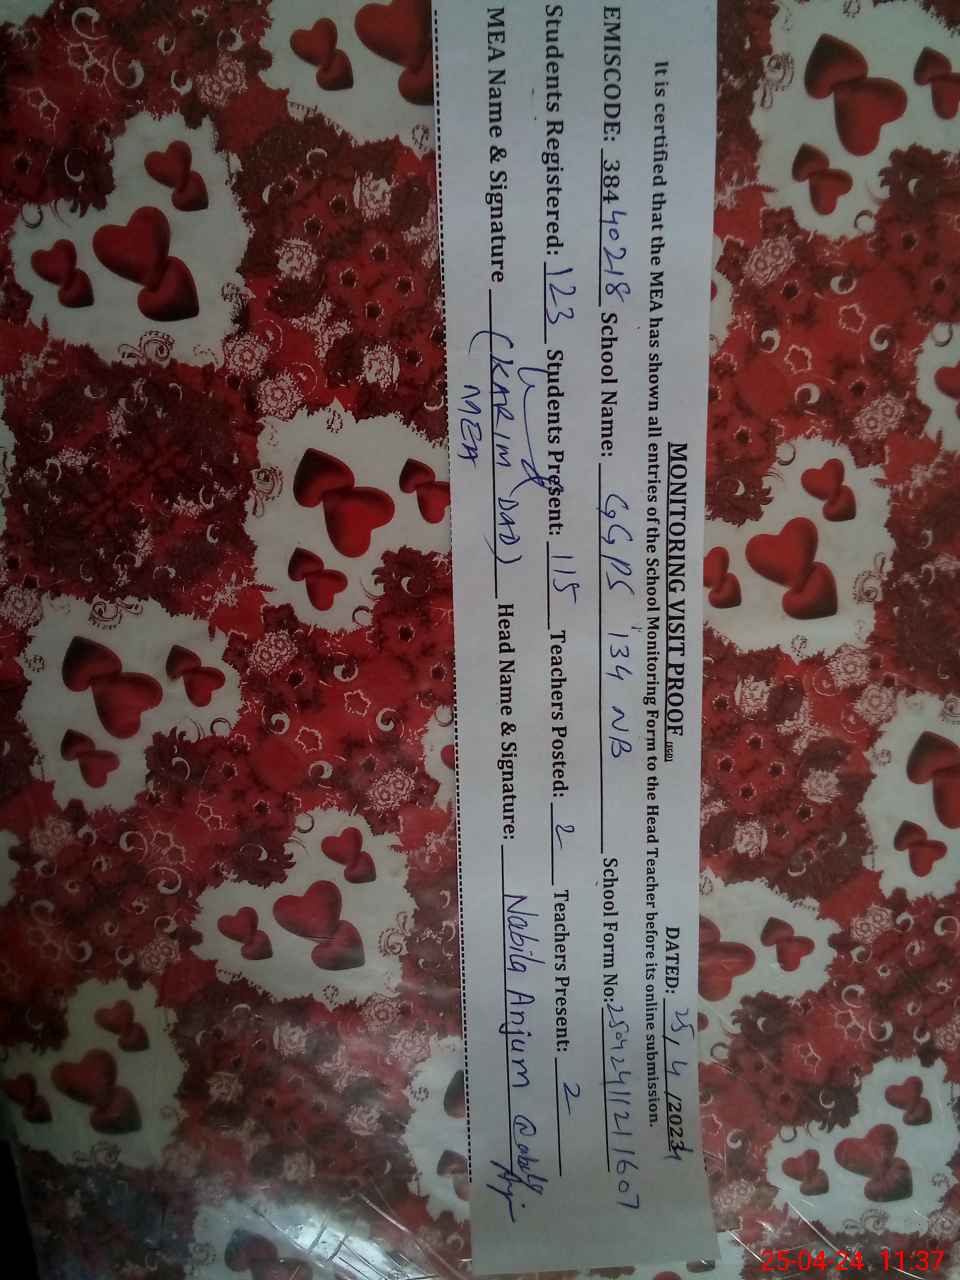 MONITORING VISIT PROOF (SGD) DATED: 25/4/20234
It is certified that the MEA has shown all entries of the School Monitoring Form to the Head Teacher before its online submission.
EMISCODE: 38440218 School Name: GGPS 134 NB School Form No: 2504241121607
Students Registered: 123 Students Present: 115 Teachers Posted: 2 Teachers Present: 2
MEA Name & Signature (KARIM DAD) Head Name & Signature: Nabila Anjum
MEA
25-04-24 11:37